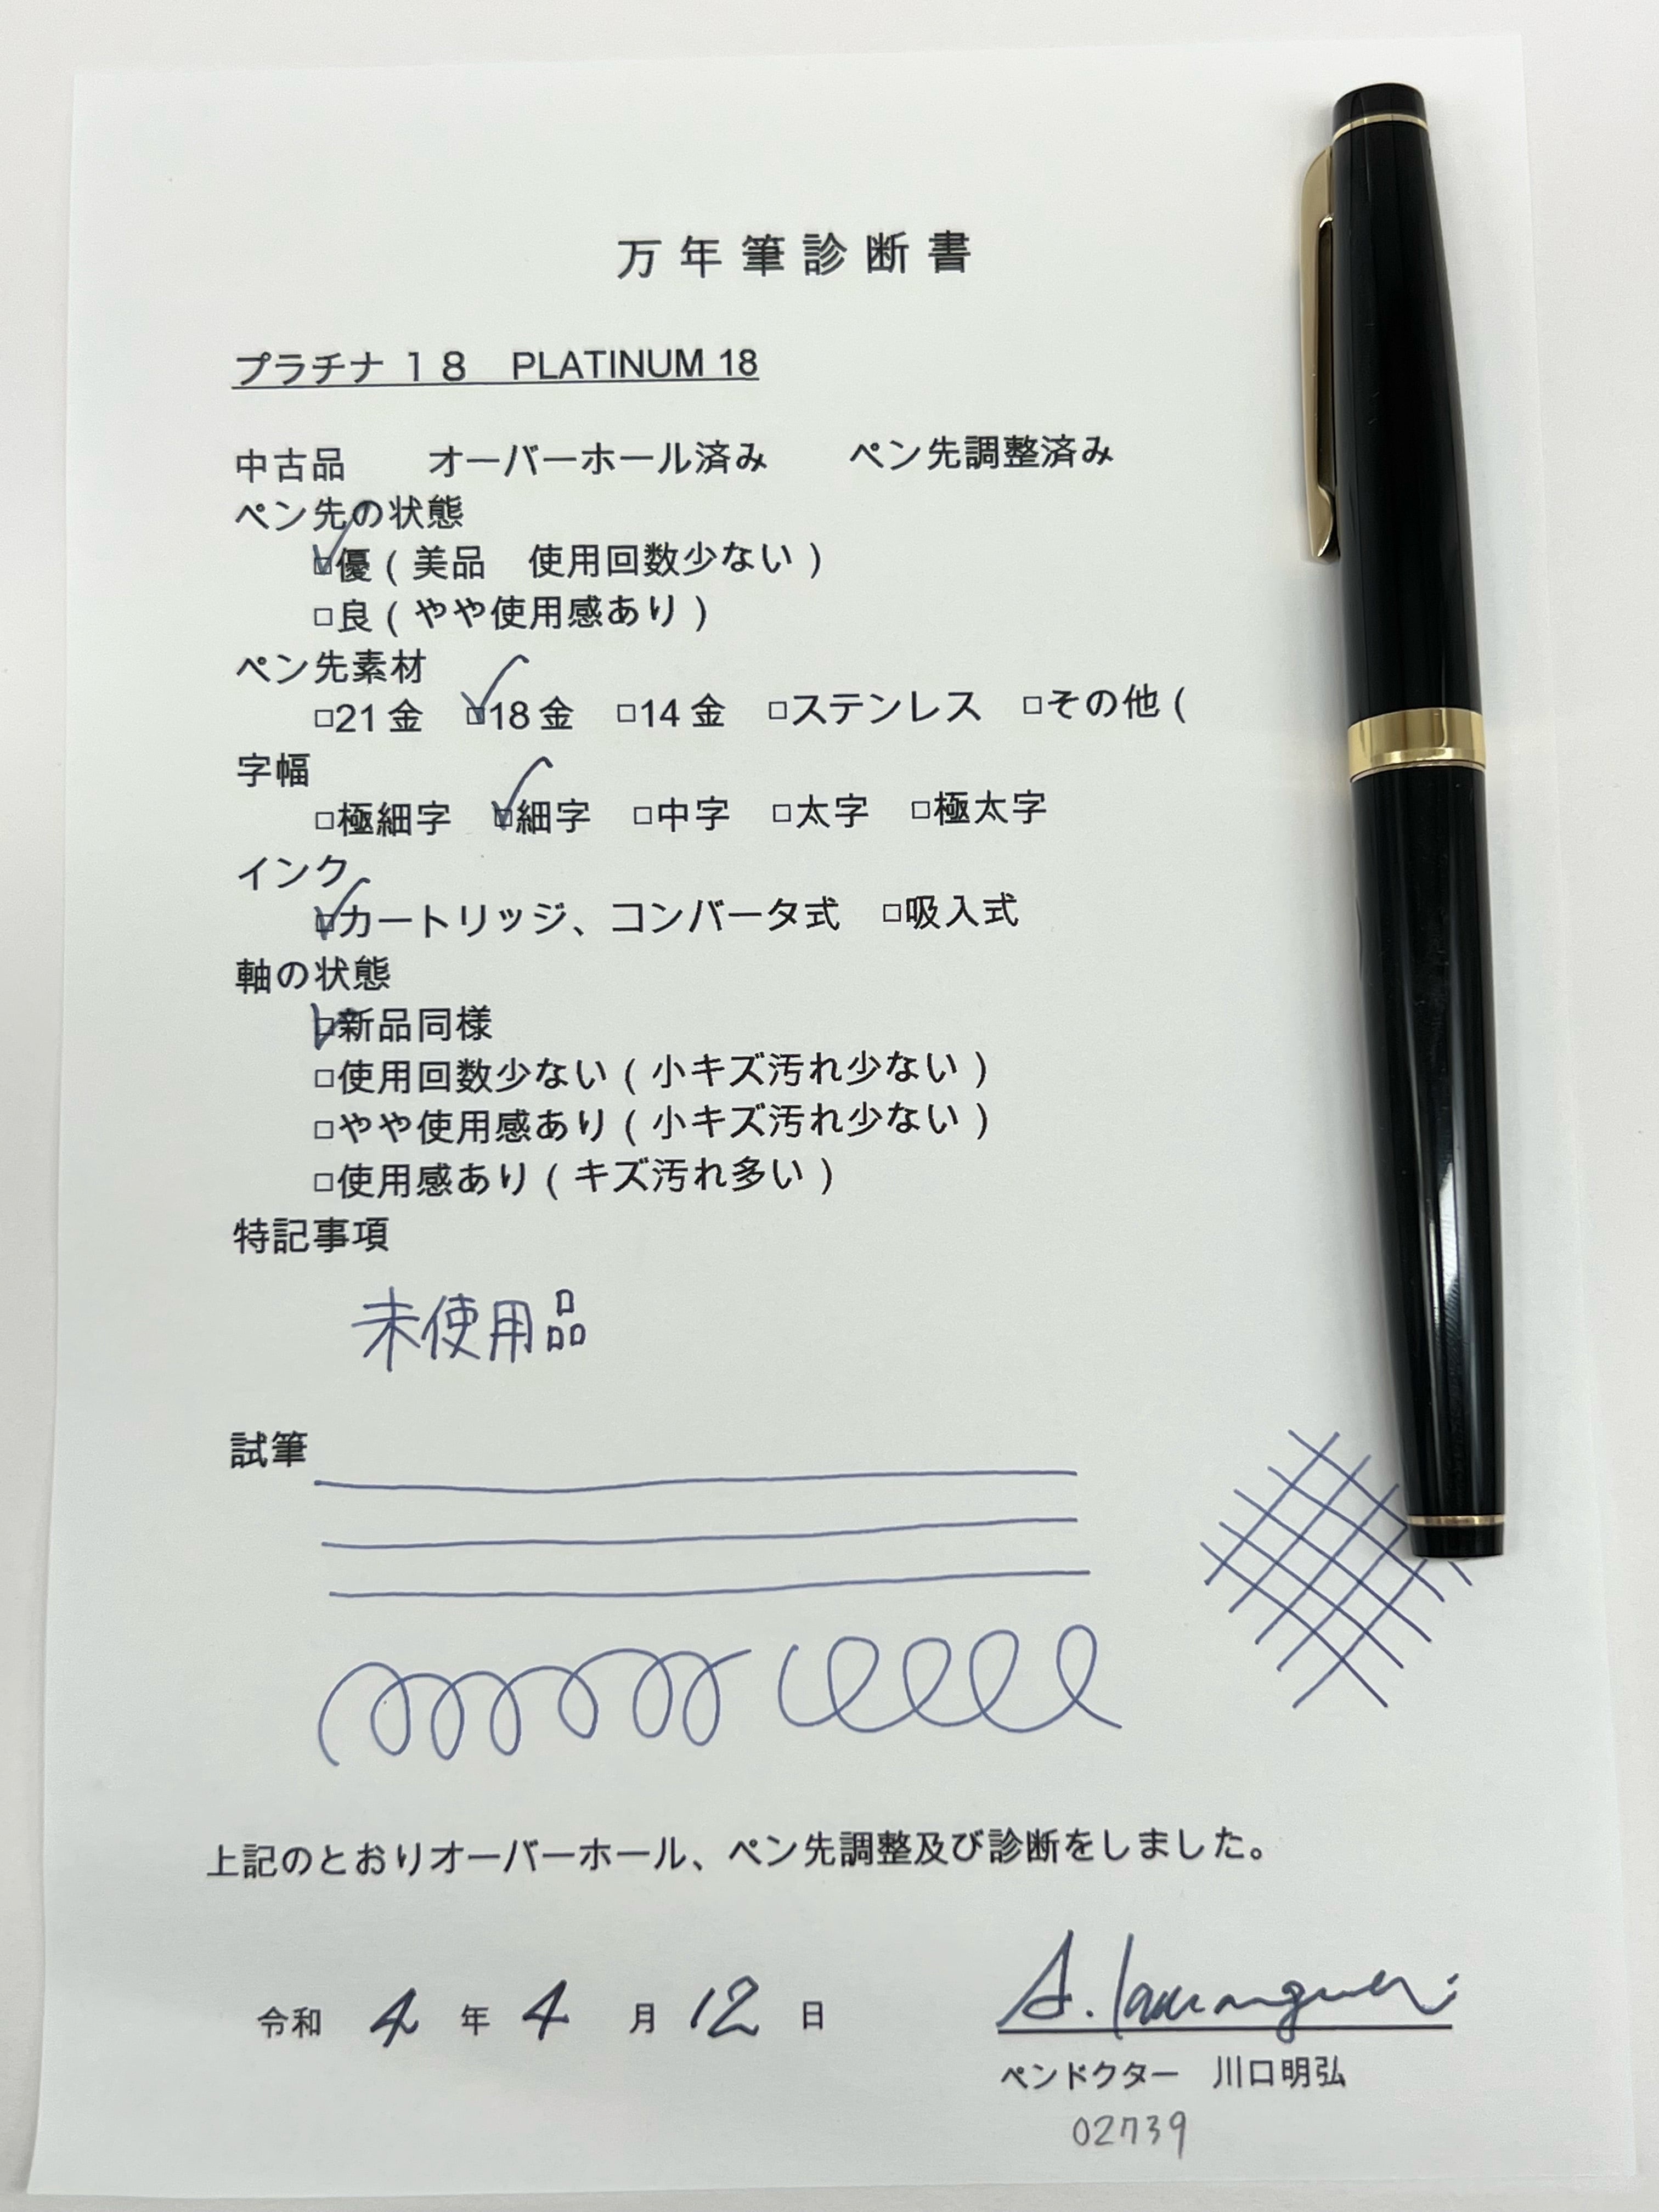 万年筆診断書
プラチナ１８　PLATINUM 18
中古品　　オーバーホール済み　　ペン先調整済み
ペン先の状態
☑優（美品　使用回数少ない）
□良（やや使用感あり）
ペン先素材
□21金　☑18金　□14金　□ステンレス　□その他（
字幅
□極細字　☑細字　□中字　□太字　□極太字
インク
☑カートリッジ、コンバータ式　□吸入式
軸の状態
☑新品同様
□使用回数少ない（小キズ汚れ少ない）
□やや使用感あり（小キズ汚れ少ない）
□使用感あり（キズ汚れ多い）
特記事項
未使用品
試筆
上記のとおりオーバーホール、ペン先調整及び診断をしました。
令和　4　年　4　月　12　日
A. Kawaguchi
ペンドクター　川口明弘
02739